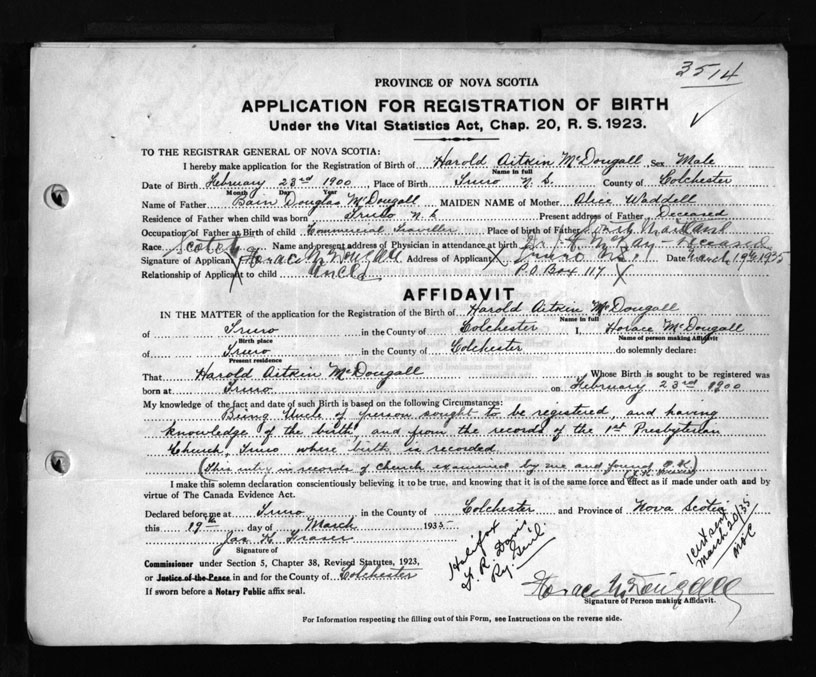 3514
PROVINCE OF NOVA SCOTIA
APPLICATION FOR REGISTRATION OF BIRTH
Under the Vital Statistics Act, Chap. 20, R. S. 1923.
TO THE REGISTRAR GENERAL OF NOVA SCOTIA:
I hereby make application for the Registration of Birth of Harold Aitkin McDougall Sex Male
Name in full
Date of Birth February 23rd 1900 Place of Birth Truro N. S. County of Colchester
Month Day Year
Name of Father Bain Douglas McDougall MAIDEN NAME of Mother Alice Waddell
Residence of Father when child was born Truro N. S Present address of Father Deceased
Occupation of Father at Birth of child Commercial Traveller Place of birth of Father South Maitland
Race Scotch Name and present address of Physician in attendance at birth Dr. McKay - Deceased
Signature of Applicant Horace McDougall Address of Applicant Truro N.S. Date March 19th 1935
Relationship of Applicant to child Uncle P.O Box 117
AFFIDAVIT
IN THE MATTER of the application for the Registration of the Birth of Harold Aitkin McDougall
Name in full
of Truro in the County of Colchester I, Horace McDougall
Birth place Name of person making Affidavit
of Truro in the County of Colchester do solemnly declare:
Present residence
That Harold Aitkin McDougall Whose Birth is sought to be registered was
born at Truro on February 23rd 1900
My knowledge of the fact and date of such Birth is based on the following Circumstances:
Being Uncle of person sought to be registered, and having
knowledge of the birth, and from the records of the 1st Presbyterian
Church, Truro where birth is recorded
(This entry in records of Church examined by me and found O.K.)
I make this solemn declaration conscientiously believing it to be true, and knowing that it is of the same force and effect as if made under oath and by
virtue of The Canada Evidence Act.
Declared before me at Truro in the County of Colchester and Province of Nova Scotia
this 19th day of March 1935
Jas K Fraser
Signature of
Commissioner under Section 5, Chapter 38, Revised Statutes, 1923,
or Justice of the Peace in and for the County of Colchester
If sworn before a Notary Public affix seal.
Halifax
R. Davis
Reg. Genl.
Cert sent
March 20/35
Horace McDougall
Signature of Person making Affidavit.
For Information respecting the filling out of this Form, see Instructions on the reverse side.